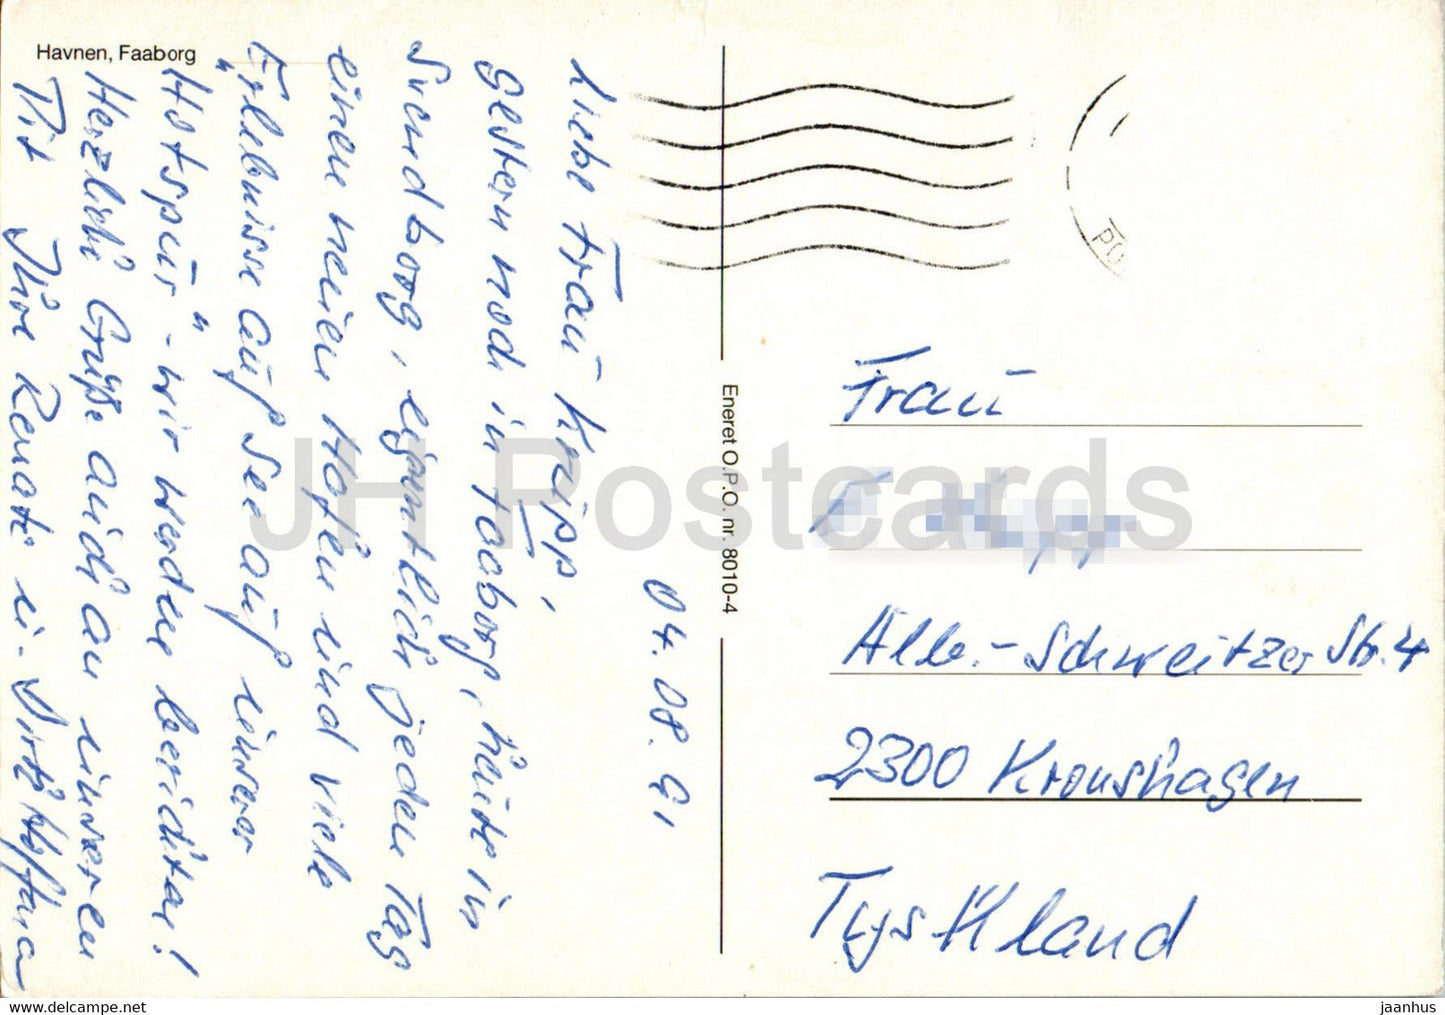 Havnen, Faaborg
04.08.91
Liebe Frau Knipp,
gestern noch in Faaborg, heute in
Svendborg, eigentlich jeden Tag
einen neuen Hafen und viele
Erlebnisse auf See auf unserer
"Hotspur" - wir werden berichten!
Herzliche Grüße auch an unseren
Pit Ihre Renate u.
Eneret O.P.O. nr. 8010-4
PO
Frau
Alb.-Schweitzer Str. 4
2300 Kronshagen
Tyskland
JH Postcards
www.delcampe.net
jaanhus